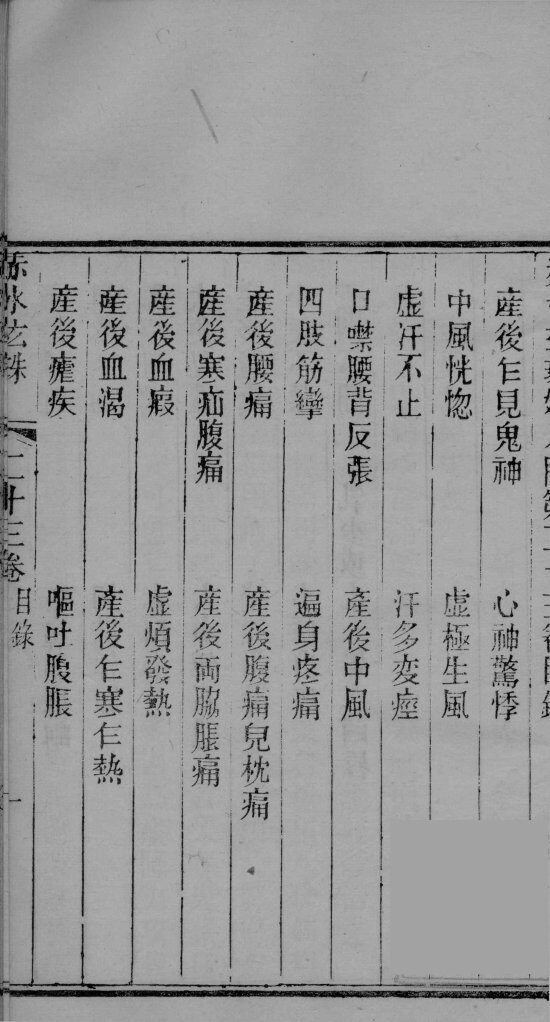 產後乍見鬼神　心神驚悸
中風恍惚　虛極生風
虛汗不止　汗多変痙
口噤腰背反張　產後中風
四肢筋攣　遍身疼痛
產後腰痛　產後腹痛兒枕痛
產後寒疝腹痛　產後両脇脹痛
產後血瘕　虛煩發熱
產後血渴　產後乍寒乍熱
產後瘧疾　嘔吐腹脹
赤水玄珠　二十三卷　目錄　一